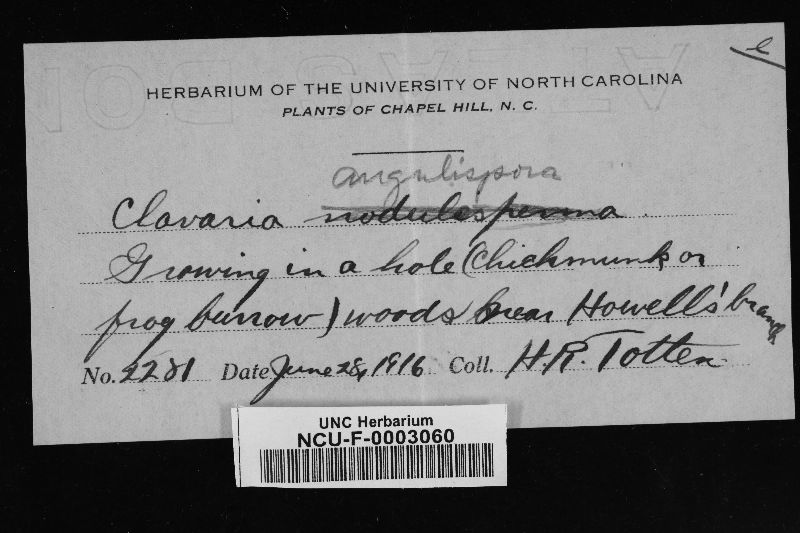 e
HERBARIUM OF THE UNIVERSITY OF NORTH CAROLINA
PLANTS OF CHAPEL HILL, N. C.
angulispora
Clavaria nodulosperma
Growing in a hole (Chickmunk or
frog burrow) woods near Howells' branch
No. 2281 Date June 28, 1916 Coll. H.R. Totten
UNC Herbarium
NCU-F-0003060